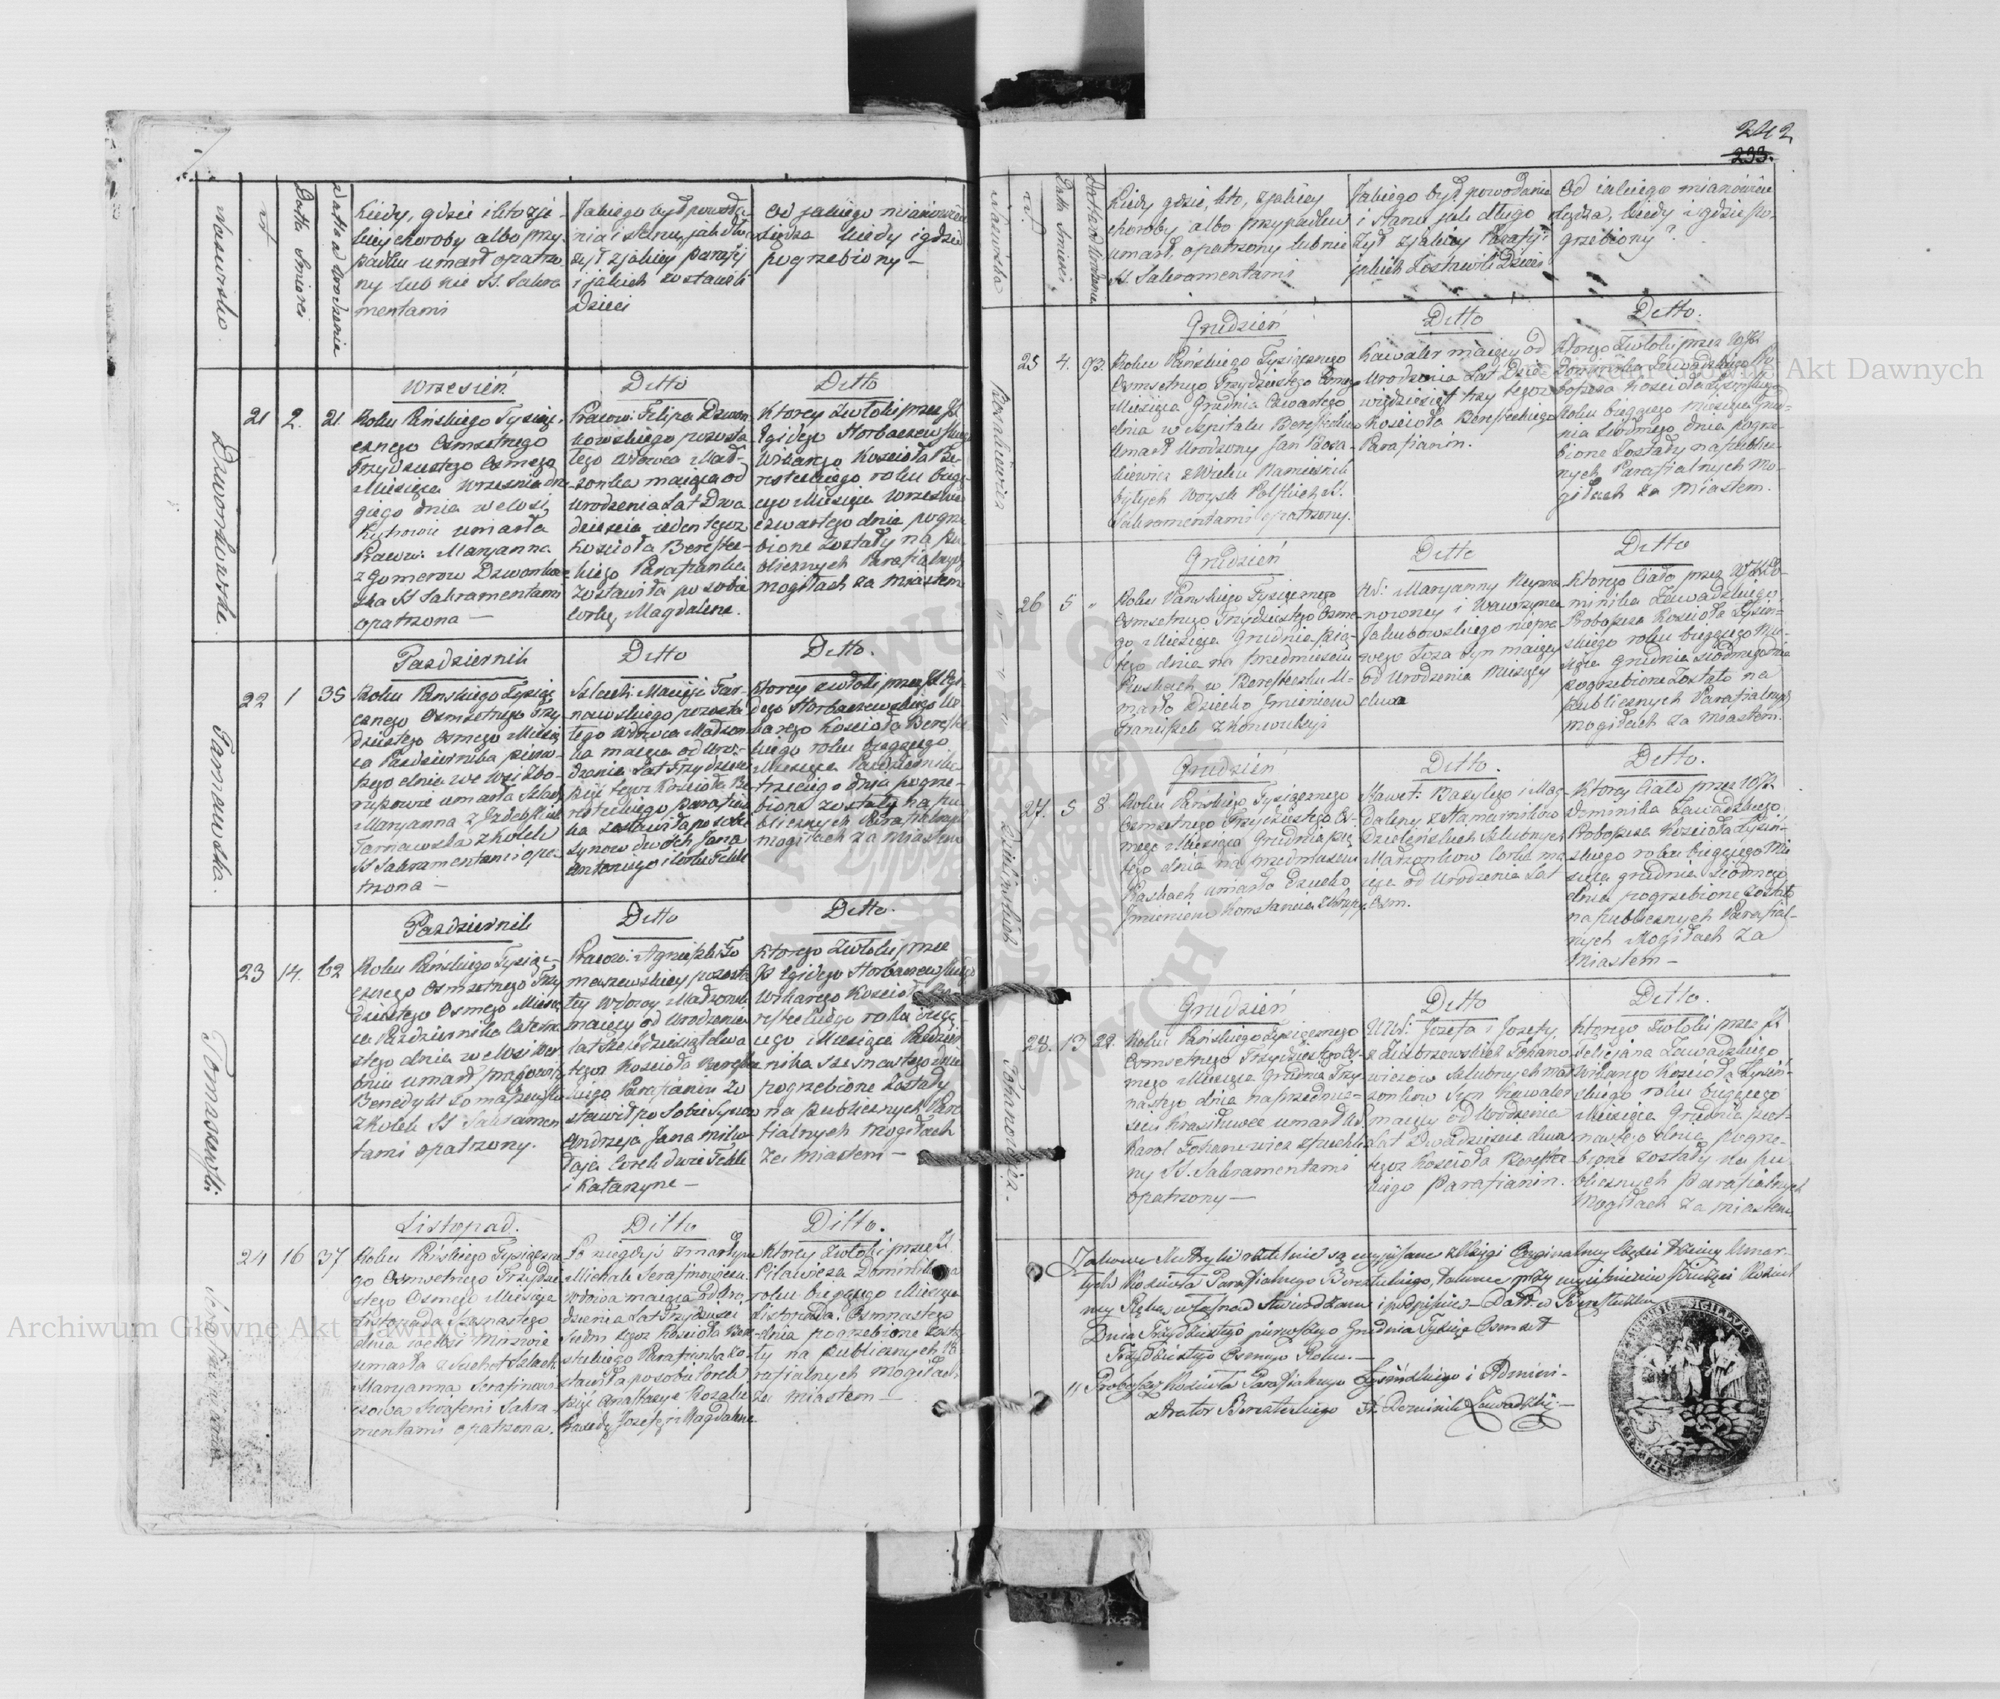 242
233.
Nazwisko
N
Datta Smierci
Datta od Urodzenia
Kiedy, gdzie i kto z ja-
kiey choroby albo przy-
padku umarł opatrzo
ny lub nie SS. Sakra
mentami
Jakiego był powoła
nia i stanu, jak długo
żył z jakiey parafij
i jakich zostawił
Dzieci
Od jakiego mianowicie
Xiędza kiedy i gdzie
pogrzebiony —
Dzwonkowska.
21
2.
21
Wrzesień
Roku Pańskiego Tysiąc
cznego Osmsetnego
Trzydziestego Osmego
Miesiąca Września dru
giego dnia we Wsi
umarła
Pracow: Maryanna
z Gomerow Dzwonkow
ska SS Sakramentami
opatrzona —
Ditto
Pracow: Felixa Dzwon
kowskiego pozosta
łego Wdowca Mał-
żonka maiąca od
Urodzenia Lat Dwa
dzieścia ieden tegoż
Kościoła Berestec-
kiego Parafianka
Zostawiła po sobie
Corkę Magdalenę.
Ditto
Ktorey Zwłoki przez X
Egidego Horbaczewskiego
Wikarego Kościoła Be
resteckiego roku bieżą
cego Miesiąca Września
czwartego dnia pogrze
bione zostały na pu
blicznych Parafialnych
mogiłach za miastem
Tarnawska.
22
1
35
Pazdziernik
Roku Pańskiego Tysiąc
cznego Osmsetnego Trzy
dziestego Osmego Miesią
ca Pazdziernika pierw
szego dnia we Wsi Zbo-
umarła Szlach
Maryanna z
Tarnawska z kolek
SS Sakramentami opa-
trzona —
Ditto
Szlach: Macieja Tar-
nawskiego pozosta
łego Wdowca Małżon
ka maiąca od Uro-
dzenia Lat Trzydzieści
pięć tegoż Kościoła Be
resteckiego parafian
ka zostawiła po sobie
synow dwóch Jana
Antoniego i Corkę Teklę
Ditto.
Ktorey zwłoki przez X Egi
dego Horbaczewskiego Wi
karego Kościoła Berestec
kiego roku bieżącego
Miesiąca Pazdziernika
trzeciego dnia pogrze
bione zostały na pu
blicznych Parafialnych
mogiłach za miastem
Tomaszewski.
23
14.
62
Pazdziernik
Roku Pańskiego Tysiąc-
cznego Osmsetnego Trzy
dziestego Osmego Miesią
ca Pazdziernika Czterna
stego dnia we Wsi
umarł pracowity
Benedykt Tomaszewski
z kolek SS Sakramen
tami opatrzony.
Ditto
Pracow: Agnieszki To
maszewskiey pozosta
łey Wdowy Małżonek
maiący od Urodzenia
Lat Sześćdziesiąt dwa
tegoż Kościoła Berestec
kiego Parafianin Zo
stawił po Sobie Synow
Andrzeja Jana Miko
łaja Corek dwie Teklę
i Katarzynę —
Ditto.
Ktorego Zwłoki przez
X Egidego Horbaczewskiego
Wikarego Kościoła Be
resteckiego roku bieżą
cego Miesiąca Pazdzier
nika Szesnastego dnia
pogrzebione zostały
na publicznych Para
fialnych mogiłach
za miastem —
24
16
37
Listopad.
Roku Pańskiego Tysiączne
go Osmsetnego Trzydzie
stego Osmego Miesiąca
Listopada Szesnastego
dnia we Wsi Mirkowie
umarła z Suchot Szlach
Maryanna Serafinowi
czowa Swiętemi Sakra-
mentami opatrzona.
Ditto
Po niegdyś zmarłym
Michale Serafinowiczu
Wdowa maiąca od Uro
dzenia Lat Trzydzieści
Siedm tegoż Kościoła Bere
steckiego Parafianka Zo-
stawiła po sobie Corek
pięć Anastazyę Rozalię
Praxedę Jozefę i Magdalenę
Ditto.
Ktorey Zwłoki przez X.
Pilawicza Dominikana
roku bieżącego Miesiąca
Listopada Osmnastego
dnia pogrzebione zosta
ły na publicznych Pa
rafialnych mogiłach
za miastem —
Nazwiska
N
Datta Smierci
Datta od Urodzenia
Kiedy gdzie, kto, z jakiey
choroby, albo przypadku
umarł, opatrzony lub nie
SS. Sakramentami
Jakiego był powołania
i Stanu jak długo
żył z jakiey Parafij i
jakich Zostawił Dzieci
Od iakiego mianowicie
Xiędza, kiedy i gdzie po-
grzebiony?
25
4.
93.
Grudzień
Roku Pańskiego Tysiącznego
Osmsetnego Trzydziestego Osmego
Miesiąca Grudnia Czwartego
dnia w Szpitalu Beresteckim
Umarł Urodzony Jan
z Wieku Namiesnik
byłych Woysk Polskich SS.
Sakramentami opatrzony.
Ditto
Kawaler maiący od
Urodzenia Lat Dzie-
więdziesiąt trzy tegoż
Kościoła Beresteckiego
Parafianin.
Ditto.
Ktorego Zwłoki przez WJX.
Dominika Zawadzkiego Pro
boszcza Kościoła Łysińskiego
Roku bieżącego Miesiąca Grud-
nia Siodmego dnia pogrze-
bione Zostały na publicz-
nych Parafialnych Mo-
giłach za Miastem.
26
5
"
Grudzień
Roku Pańskiego Tysiącznego
Osmsetnego Trzydziestego Osme-
go Miesiąca Grudnia pią-
tego dnia na przedmieściu
Piaskach w Berestecku U-
marło Dziecko Jmieniem
Franciszek z Konwulsyi
Ditto
Ur: Maryanny
i Wawrzyńca
Jakubowskiego niepra
wego Łoża Syn maiący
od Urodzenia Miesięcy
dwa
Ditto
Ktorego Ciało przez WJX Do-
minika Zawadzkiego
Proboszcza Kościoła Łysiń-
skiego roku bieżącego Mie-
siąca Grudnia Siodmego dnia
pogrzebione Zostało na
publicznych Parafialnych
mogiłach za miastem.
27.
5
8
Grudzień
Roku Pańskiego Tysiącznego
Osmsetnego Trzydziestego Os-
mego Miesiąca Grudnia pią
tego dnia na przedmieściu
Piaskach umarło Dziecko
Jmieniem Konstancia
Ditto.
Sławet: Bazylego i Mag
daleny
Dzielińskich Szlubnych
Małżonkow Corka ma
iąca od Urodzenia Lat
Osm.
Ditto.
Ktorey Ciało przez WJX.
Dominika Zawadzkiego
Proboszcza Kościoła Łysiń-
skiego roku bieżącego Mie
siąca Grudnia Siodmego
dnia pogrzebione Zostało
na publicznych Parafial-
nych Mogiłach za
Miastem —
28.
13
22.
Grudzień
Roku Pańskiego Tysiącznego
Osmsetnego Trzydziestego Os-
mego Miesiąca Grudnia Trzy
nastego dnia na przedmie-
ściu umarł Ur
Karol Tohanowicz z puchli
ny SS. Sakramentami
opatrzony —
Ditto
Urod: Jozefa i Jozefy
z Tohano
wiczow Szlubnych Mał
żonkow Syn Kawaler
maiący od Urodzenia
Lat Dwadzieścia dwa
tegoż Kościoła Berestec
kiego Parafianin.
Ditto.
Ktorego Zwłoki przez X
Felicjana Zawadzkiego
Wikarego Kościoła Łysiń-
skiego roku bieżącego
Miesiąca Grudnia pięt-
nastego dnia pogrze-
bione zostały na pu-
blicznych Parafialnych
Mogiłach za Miastem
Takowe Metryki rzetelnie są wypisane z Xięgi Oryginalney Umar-
łych Kościoła Parafialnego Beresteckiego, takowe przy
ręką własną stwierdzam i podpisuię — Datt: w Berestecku
Dnia Trzydziestego pierwszego Grudnia Tysiąc Osmset
Trzydziestego Osmego Roku. —
Proboszcz Kościoła Parafialnego Łysińskiego i Admini-
strator Berestecki X. Dominik Zawadzki —
Archiwum Główne Akt Dawnych
Archiwum Główne Akt Dawnych